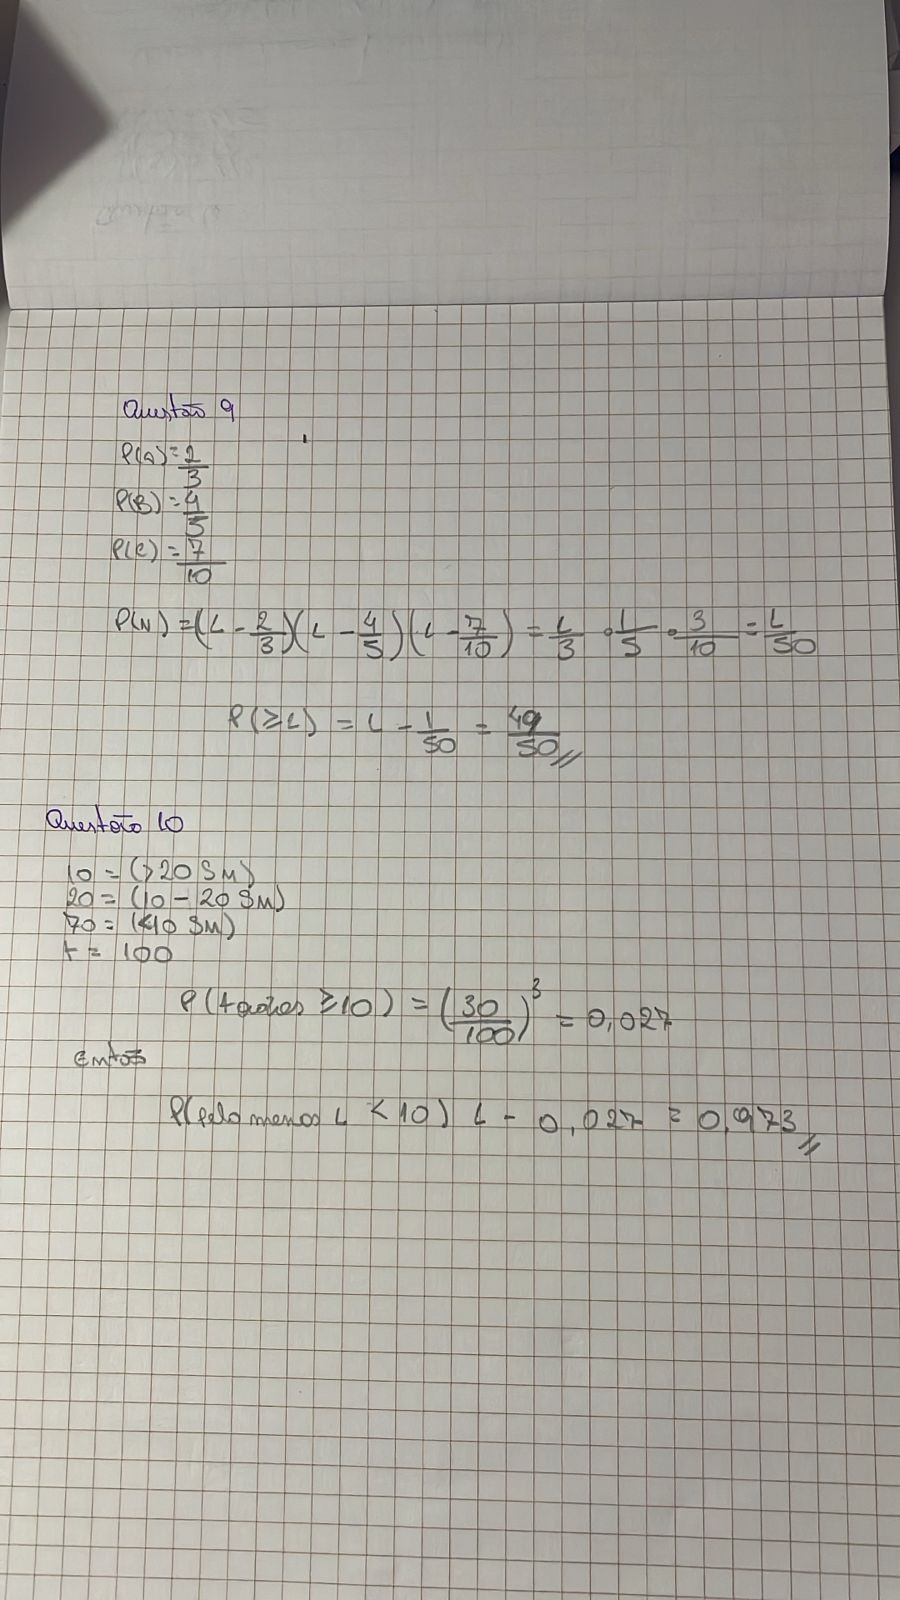 Questão 9
P(A) = 2/3
P(B) = 4/5
P(C) = 7/10
P(N) = (1 - 2/3)(1 - 4/5)(1 - 7/10) = 1/3 . 1/5 . 3/10 = 1/50
P(≥1) = 1 - 1/50 = 49/50 //
Questão 10
10 = (>20 SM)
20 = (10 - 20 SM)
70 = (<10 SM)
t = 100
P(todos ≥ 10) = (30/100)³ = 0,027
Então
P(pelo menos 1 < 10) 1 - 0,027 = 0,973 //